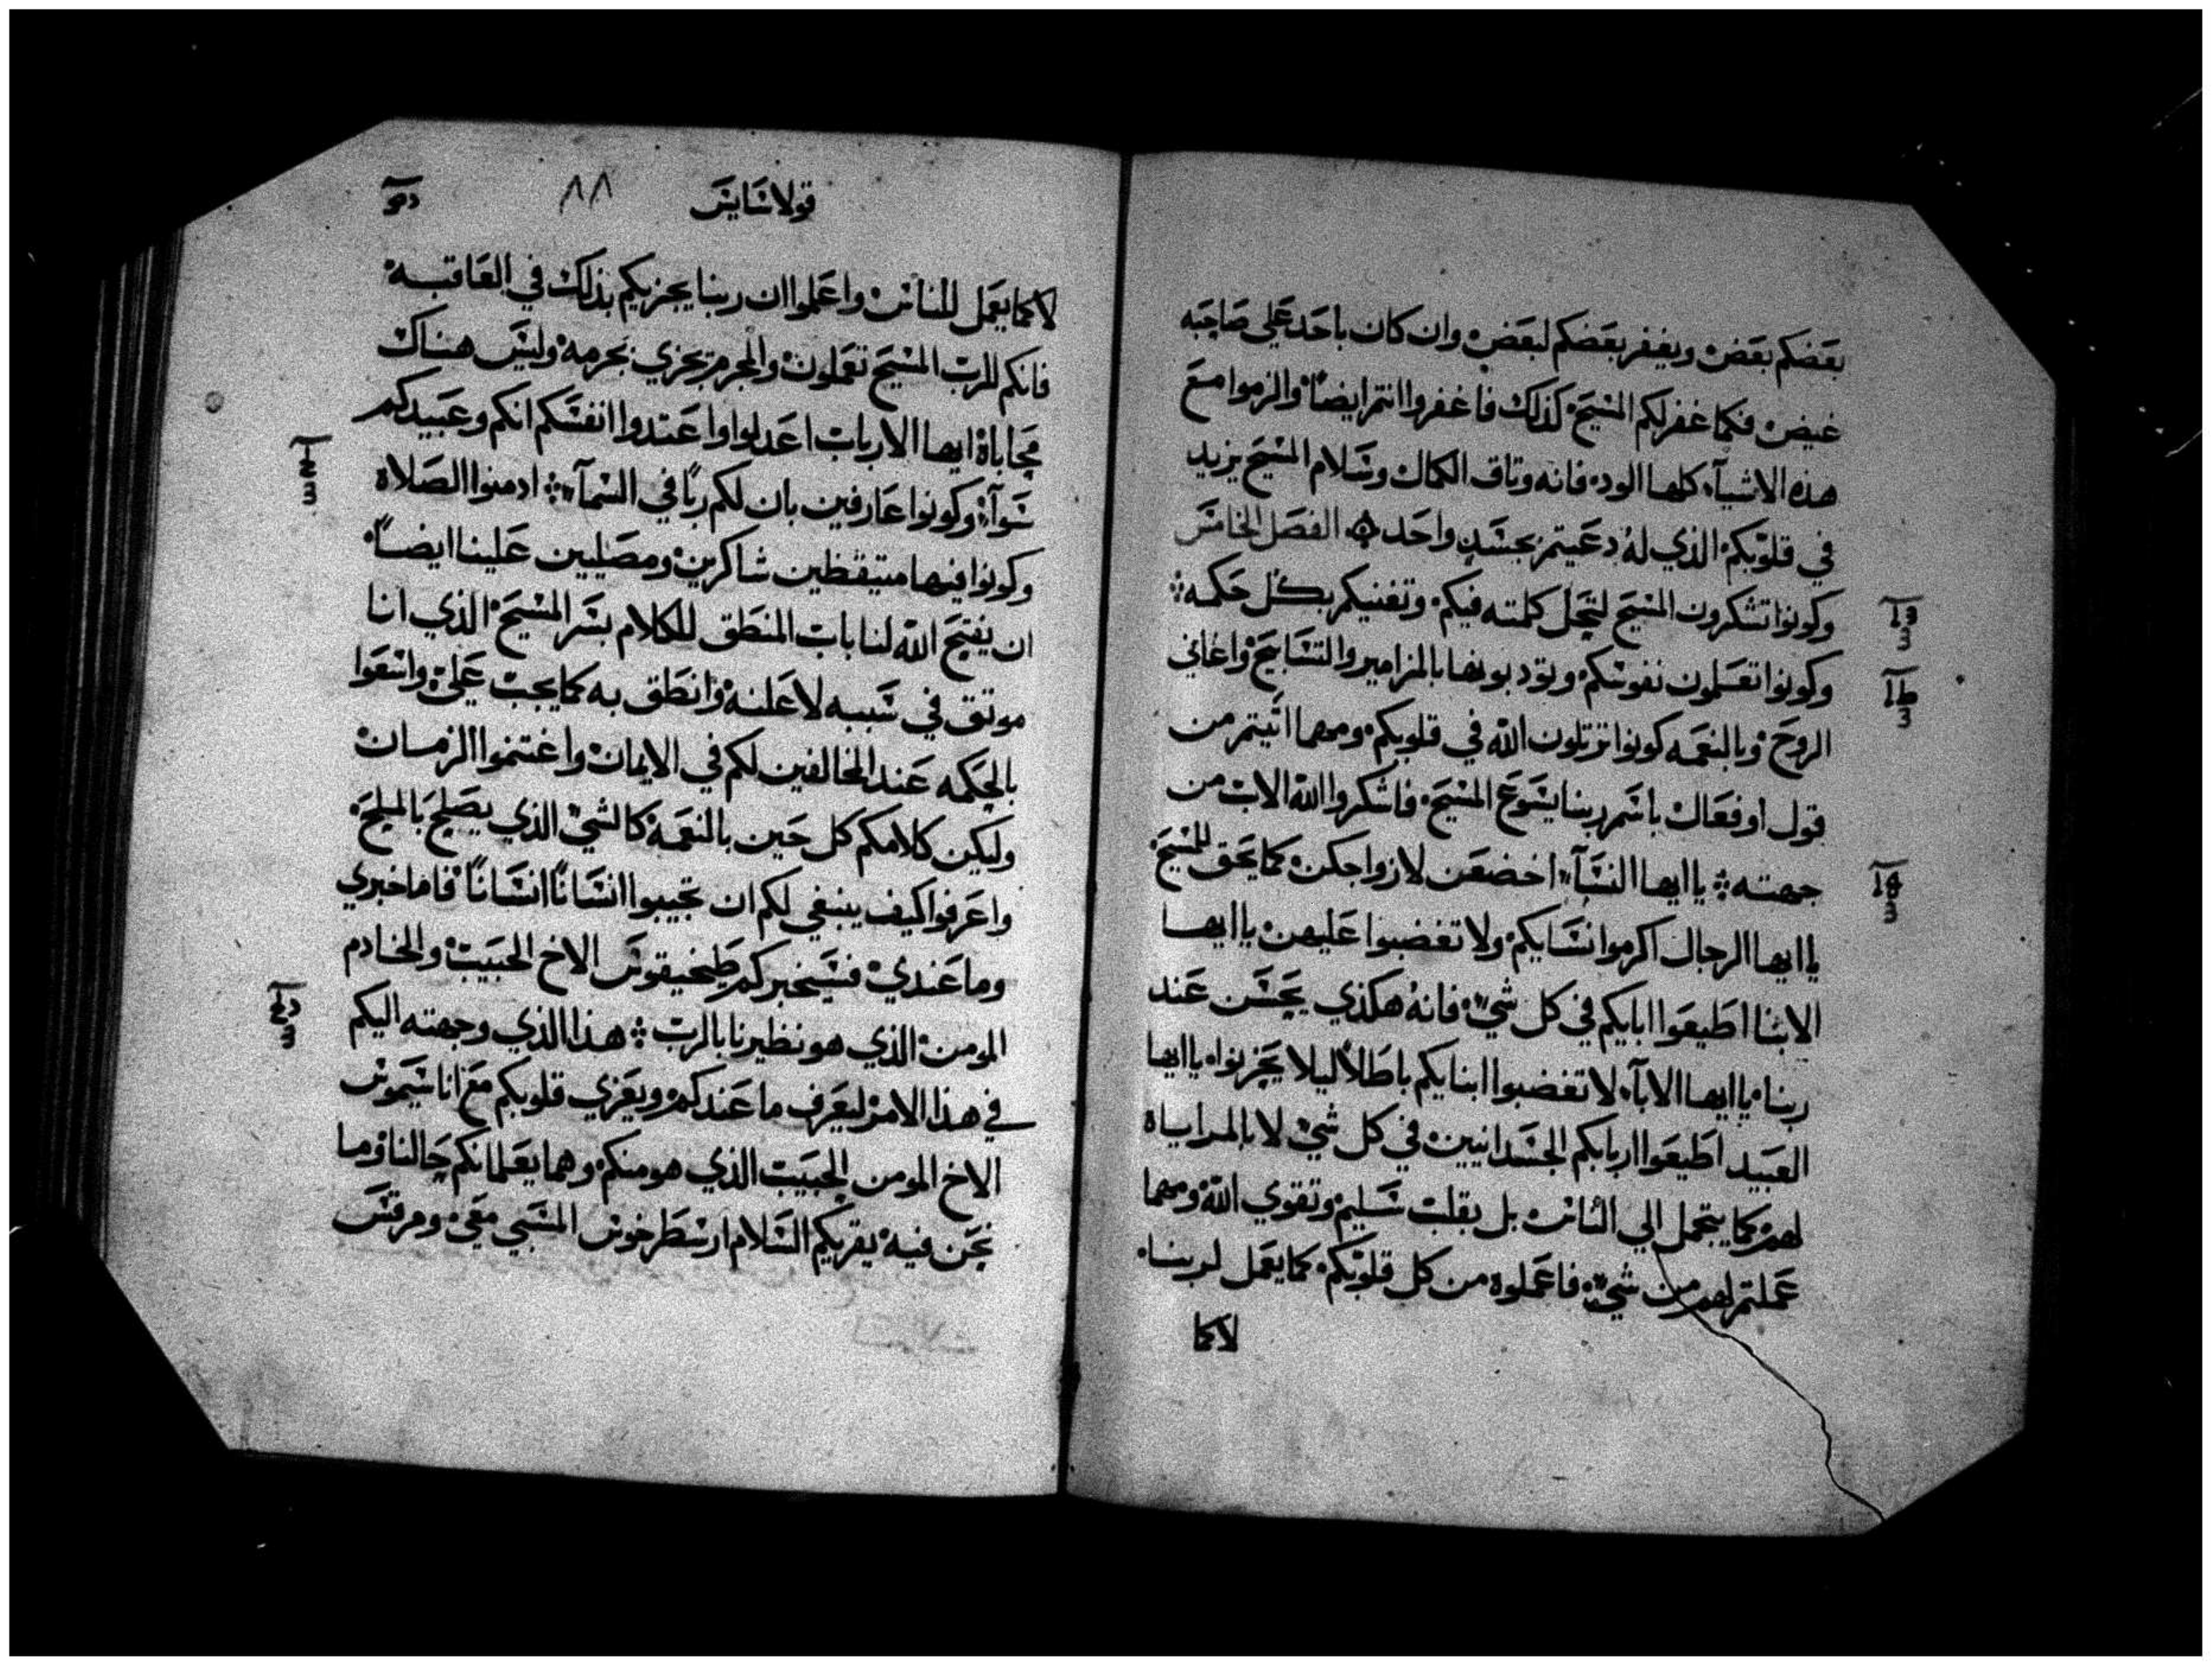 بعضكم بعض ويغفر بعضكم لبعض وان كان باحد علي صاحبه
غيض فكما غفر لكم المسيح كذلك فاغفروا انتم ايضًا والزموا مع
هذه الاشيآء كلها الود فانه وتاق الكمال وسلام المسيح يزيد
في قلوبكم الذي له دعيتم بجسدٍ واحد الفصل الخامس
وكونوا تشكرون المسيح لتحل كلمته فيكم وتغنيكم بكل حكمه
وكونوا تعلمون نفوسكم وتودبونها بالمزامير والتسابيح واغاني
الروح وبالنعمه كونوا ترتلون الله في قلوبكم ومهما اتيتم من
قول اوفعال باسم ربنا يسوع المسيح فاشكروا الله الاب من
جهته يا ايها النسآء اخضعن لازواجكن كما يحق للمسيح
يا ايها الرجال اكرموا نسايكم ولا تغضبوا عليهن يا ايها
الابنا اطيعوا ابايكم في كل شيء فانه هكذي يحسن عند
ربنا يا ايها الابآء لا تغضبوا ابنايكم باطلاً ليلا يحزنوا يا ايها
العبيد اطيعوا اربابكم الجسدانيين في كل شي لا بالمراياه
لهم كما يتجمل الي الناس بل بقلب سليم وتقوي الله ومهما
عملتم لهم من شيء فاعملوه من كل قلوبكم كما يعمل لربنا
لا كما
قولاسايس
٨٨
لا كما يعمل للناس واعملوا ان ربنا يجزيكم بذلك في العاقبه
فانكم للرب المسيح تعملون والمجرم يجزي بجرمه وليس هناك
محاباة ايها الارباب اعدلوا واعتدوا انفسكم انكم وعبيدكم
سوآء وكونوا عارفين بان لكم ربًا في السمآء ادمنوا الصلاة
وكونوا فيها متيقظين شاكرين ومصليين علينا ايضًا
ان يفتح الله لنا باب المنطق للكلام بسر المسيح الذي انا
موتق في سببه لاعلنه وانطق به كما يجب علي واسعوا
بالحكمه عند المخالفين لكم في الايمان واغتنموا الزمان
وليكن كلامكم كل حين بالنعمه كالشي الذي يصلح بالملح
واعرفوا كيف ينبغي لكم ان تجيبوا انسانًا انسانًا فاما خبري
وما عندي فسيخبركم طيخيقوس الاخ الحبيب والخادم
المومن الذي هو نظيرنا بالرب هذا الذي وجهته اليكم
في هذا الامر ليعرف ما عندكم ويعزي قلوبكم مع اناسيموس
الاخ المومن الحبيب الذي هو منكم وهما يعلمانكم حالنا وما
نحن فيه يقريكم السلام ارسطرخوس المسبي معي ومرقس